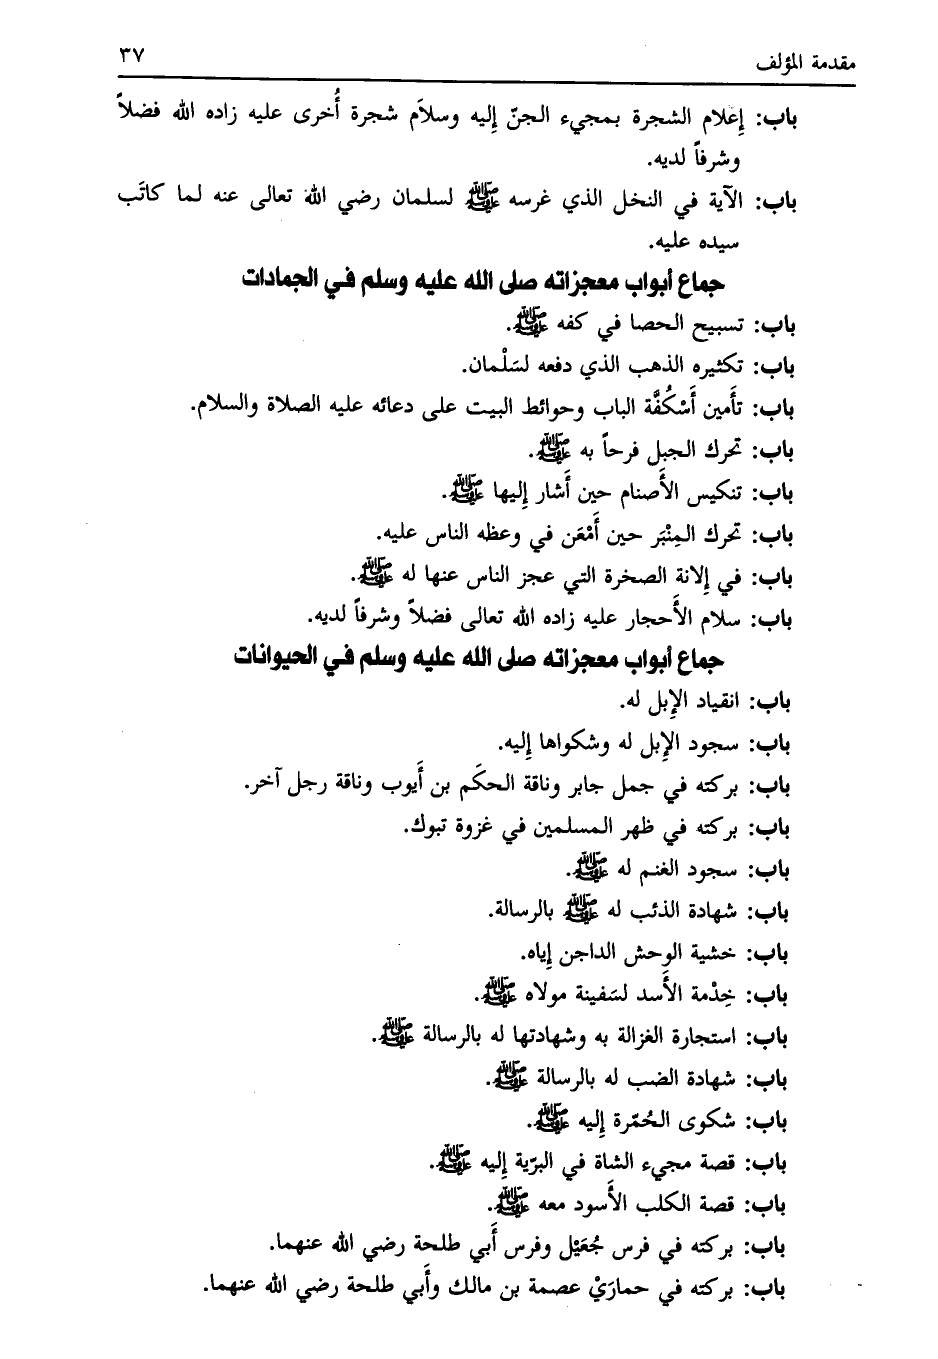 مقدمة المؤلف ٣٧
باب: إعلام الشجرة بمجيء الجنّ إليه وسلاَم شجرة أُخرى عليه زاده الله فضلاً
وشرفاً لديه.
باب: الآية في النخل الذي غرسه ﷺ لسلمان رضي الله تعالى عنه لما كاتَب
سيده عليه.
جماع أبواب معجزاته صلى الله عليه وسلم في الجمادات
باب: تسبيح الحصا في كفه ﷺ.
باب: تكثيره الذهب الذي دفعه لسَلْمان.
باب: تأَمين أَسْكُفَّة الباب وحوائط البيت على دعائه عليه الصلاة والسلام.
باب: تحرك الجبل فرحاً به ﷺ.
باب: تنكيس الأَصنام حين أَشار إِليها ﷺ.
باب: تحرك المِنْبَر حين أَمْعَن في وعظه الناس عليه.
باب: في إِلانة الصخرة التي عجز الناس عنها له ﷺ.
باب: سلام الأَحجار عليه زاده الله تعالى فضلاً وشرفاً لديه.
جماع أبواب معجزاته صلى الله عليه وسلم في الحيوانات
باب: انقياد الإِبل له.
باب: سجود الإِبل له وشكواها إِليه.
باب: بركته في جمل جابر وناقة الحكَم بن أَيوب وناقة رجل آخر.
باب: بركته في ظهر المسلمين في غزوة تبوك.
باب: سجود الغنم له ﷺ.
باب: شهادة الذئب له ﷺ بالرسالة.
باب: خشية الوحش الداجن إِياه.
باب: خِدْمة الأَسد لسَفينة مولاه ﷺ.
باب: استجارة الغزالة به وشهادتها له بالرسالة ﷺ.
باب: شهادة الضب له بالرسالة ﷺ.
باب: شكوى الحُمّرة إِليه ﷺ.
باب: قصة مجيء الشاة في البرّية إِليه ﷺ.
باب: قصة الكلب الأَسود معه ﷺ.
باب: بركته في فرس جُعَيْل وفرس أَبي طلحة رضي الله عنهما.
باب: بركته في حمارَيْ عصمة بن مالك وأَبي طلحة رضي الله عنهما.